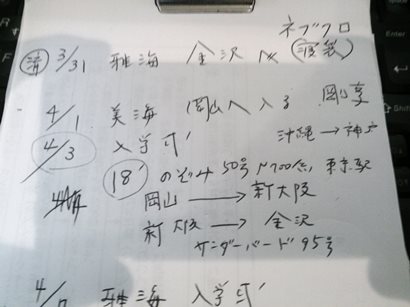 ネブクロ
済 3/31 雅海 金沢 へ (寝袋)
4/1 美海 岡山へ入る 剛享
4/3 入学式 沖縄→神戸
18' のぞみ50号 N700系 東京駅
岡山 → 新大阪
新大阪 → 金沢
サンダーバード95号
雅海 入学式